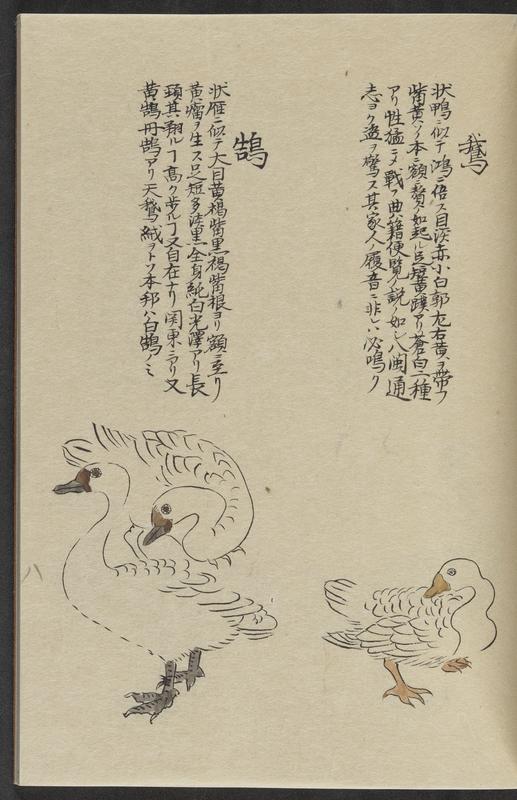 鵞
状鴨ニ似テ鴻ニ倍ス目淡赤小白郭左右黄ヲ帯フ
觜黄ノ本ニ額ニ贅ノ如起ル足短黄蹼アリ蒼白二種
アリ性猛ニメ戦フ典籍便覧ノ説ノ如シ八閩通
志ヨク盗ヲ驚ス其家人ノ履音ニ非レハ必鳴ク
鵠
状雁ニ似テ大目黄褐觜黒褐觜根ヨリ額ニ至リ
黄瘤ヲ生ス足短多淡黒全身純白光澤アリ長
頸其翔ルヿ高ク歩ルヿ又自在ナリ関東ニアリ又
黄鵠丹鵠アリ天鵞絨ヲトフ本邦ハ白鵠ノミ